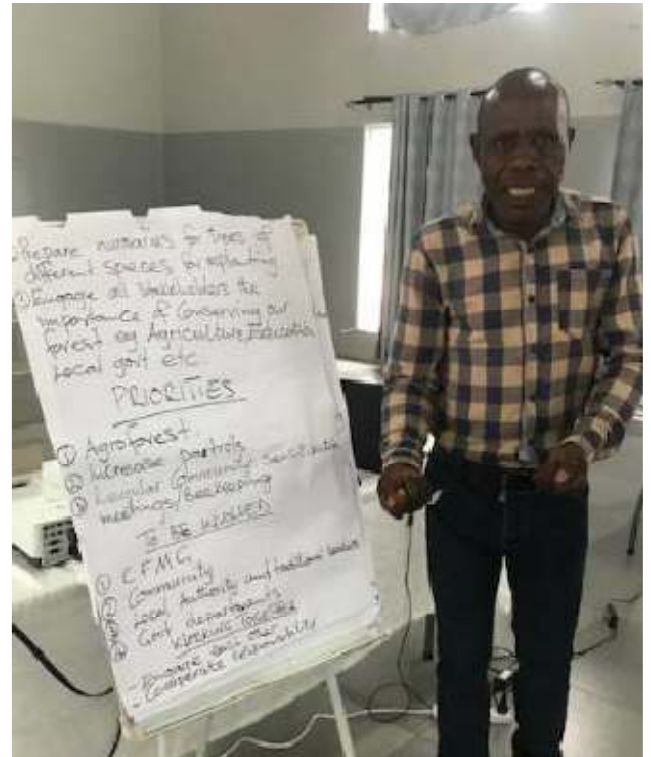 Prepare nurseries for trees of
different spaces for replanting
② Engage all stakeholders the
importance of Conserving our
forest eg Agriculture, Education
Local govt etc
PRIORITIES
① Agroforest
② Increase patrols
③ Community Sensitization
meetings/Beekeeping
TO BE INVOLVED
① CFMG
② Community
③ Local Authority and traditional leaders
④ Govt departments
WORKING TOGETHER
- Engage each other
- responsibility